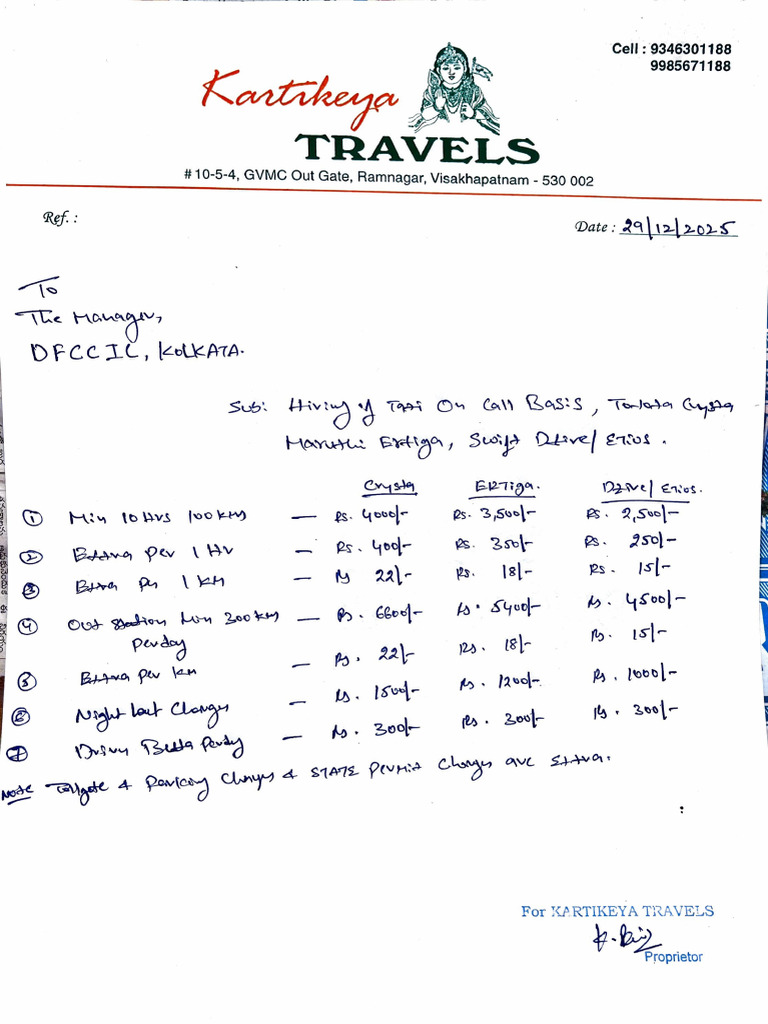 Cell : 9346301188
9985671188
Kartikeya
TRAVELS
# 10-5-4, GVMC Out Gate, Ramnagar, Visakhapatnam - 530 002
Ref. :
Date : 29/12/2025
To
The Manager,
DFCCIL, KOLKATA.
Sub: Hiring of Taxi On Call Basis, Toyota Crysta
Maruthi Ertiga, Swift Dzire/ Etios.
Crysta ERTiga. Dzire/ Etios.
① Min 10 Hrs 100 KMs — Rs. 4000/- Rs. 3,500/- Rs. 2,500/-
② Extra Per 1 Hr — Rs. 400/- Rs. 350/- Rs. 250/-
③ Extra Per 1 KM — Rs 22/- Rs. 18/- Rs. 15/-
④ Out station Min 300 KMs — Rs. 6600/- Rs. 5400/- Rs. 4500/-
Per day
⑤ Extra Per KM — Rs. 22/- Rs. 18/- Rs. 15/-
⑥ Night halt Charges — Rs. 1500/- Rs. 1200/- Rs. 1000/-
⑦ Driver Betta Per day — Rs. 300/- Rs. 300/- Rs. 300/-
Note Tollgate & Parking Charges & STATE Permit Charges are Extra.
For KARTIKEYA TRAVELS
Proprietor